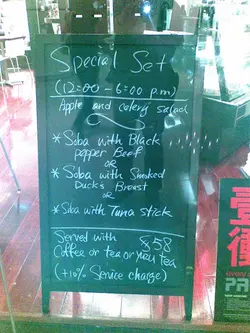 Special Set
(12:00 - 6:00 p.m)
Apple and celery salad
* Soba with Black
pepper Beef
OR
* Soba with Smoked
Duck's Breast
OR
* Soba with Tuna stick
Served with $58
Coffee or tea or yuzu tea
(+10% Service charge)
衝
every
PA